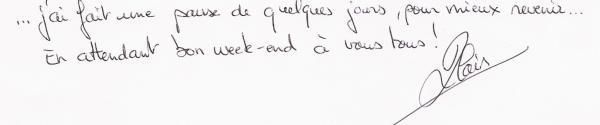 ... j'ai fait une pause de quelques jours, pour mieux revenir...
En attendant bon week-end à vous tous !